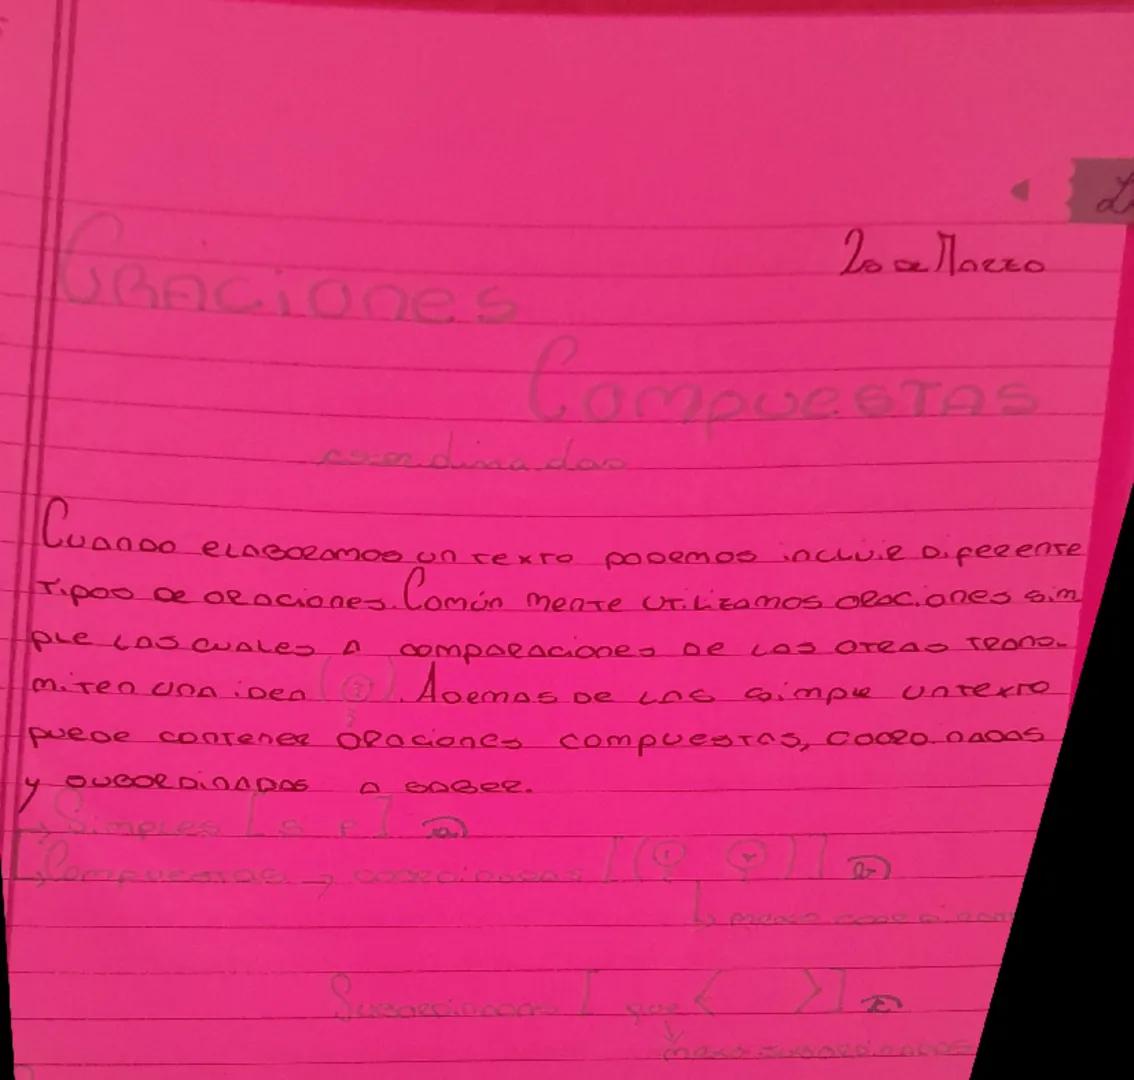 20 de Marzo
Oraciones
Compuestas
coordinadas
Cuando elaboramos un texto podemos incluir diferente
tipos de oraciones. Común mente utilizamos oraciones sim
ple las cuales a comparaciones de las otras trans-
miten una idea (1). Ademas de las simple un texto
puede contener oraciones compuestas, coordinadas
y subordinadas a saber.
→ Simples [S P] a
→ Compuestas → coordinadas [( 1 2 )] b
↳ nexo
Subordinadas [ que < > ] c
nexo subordinados